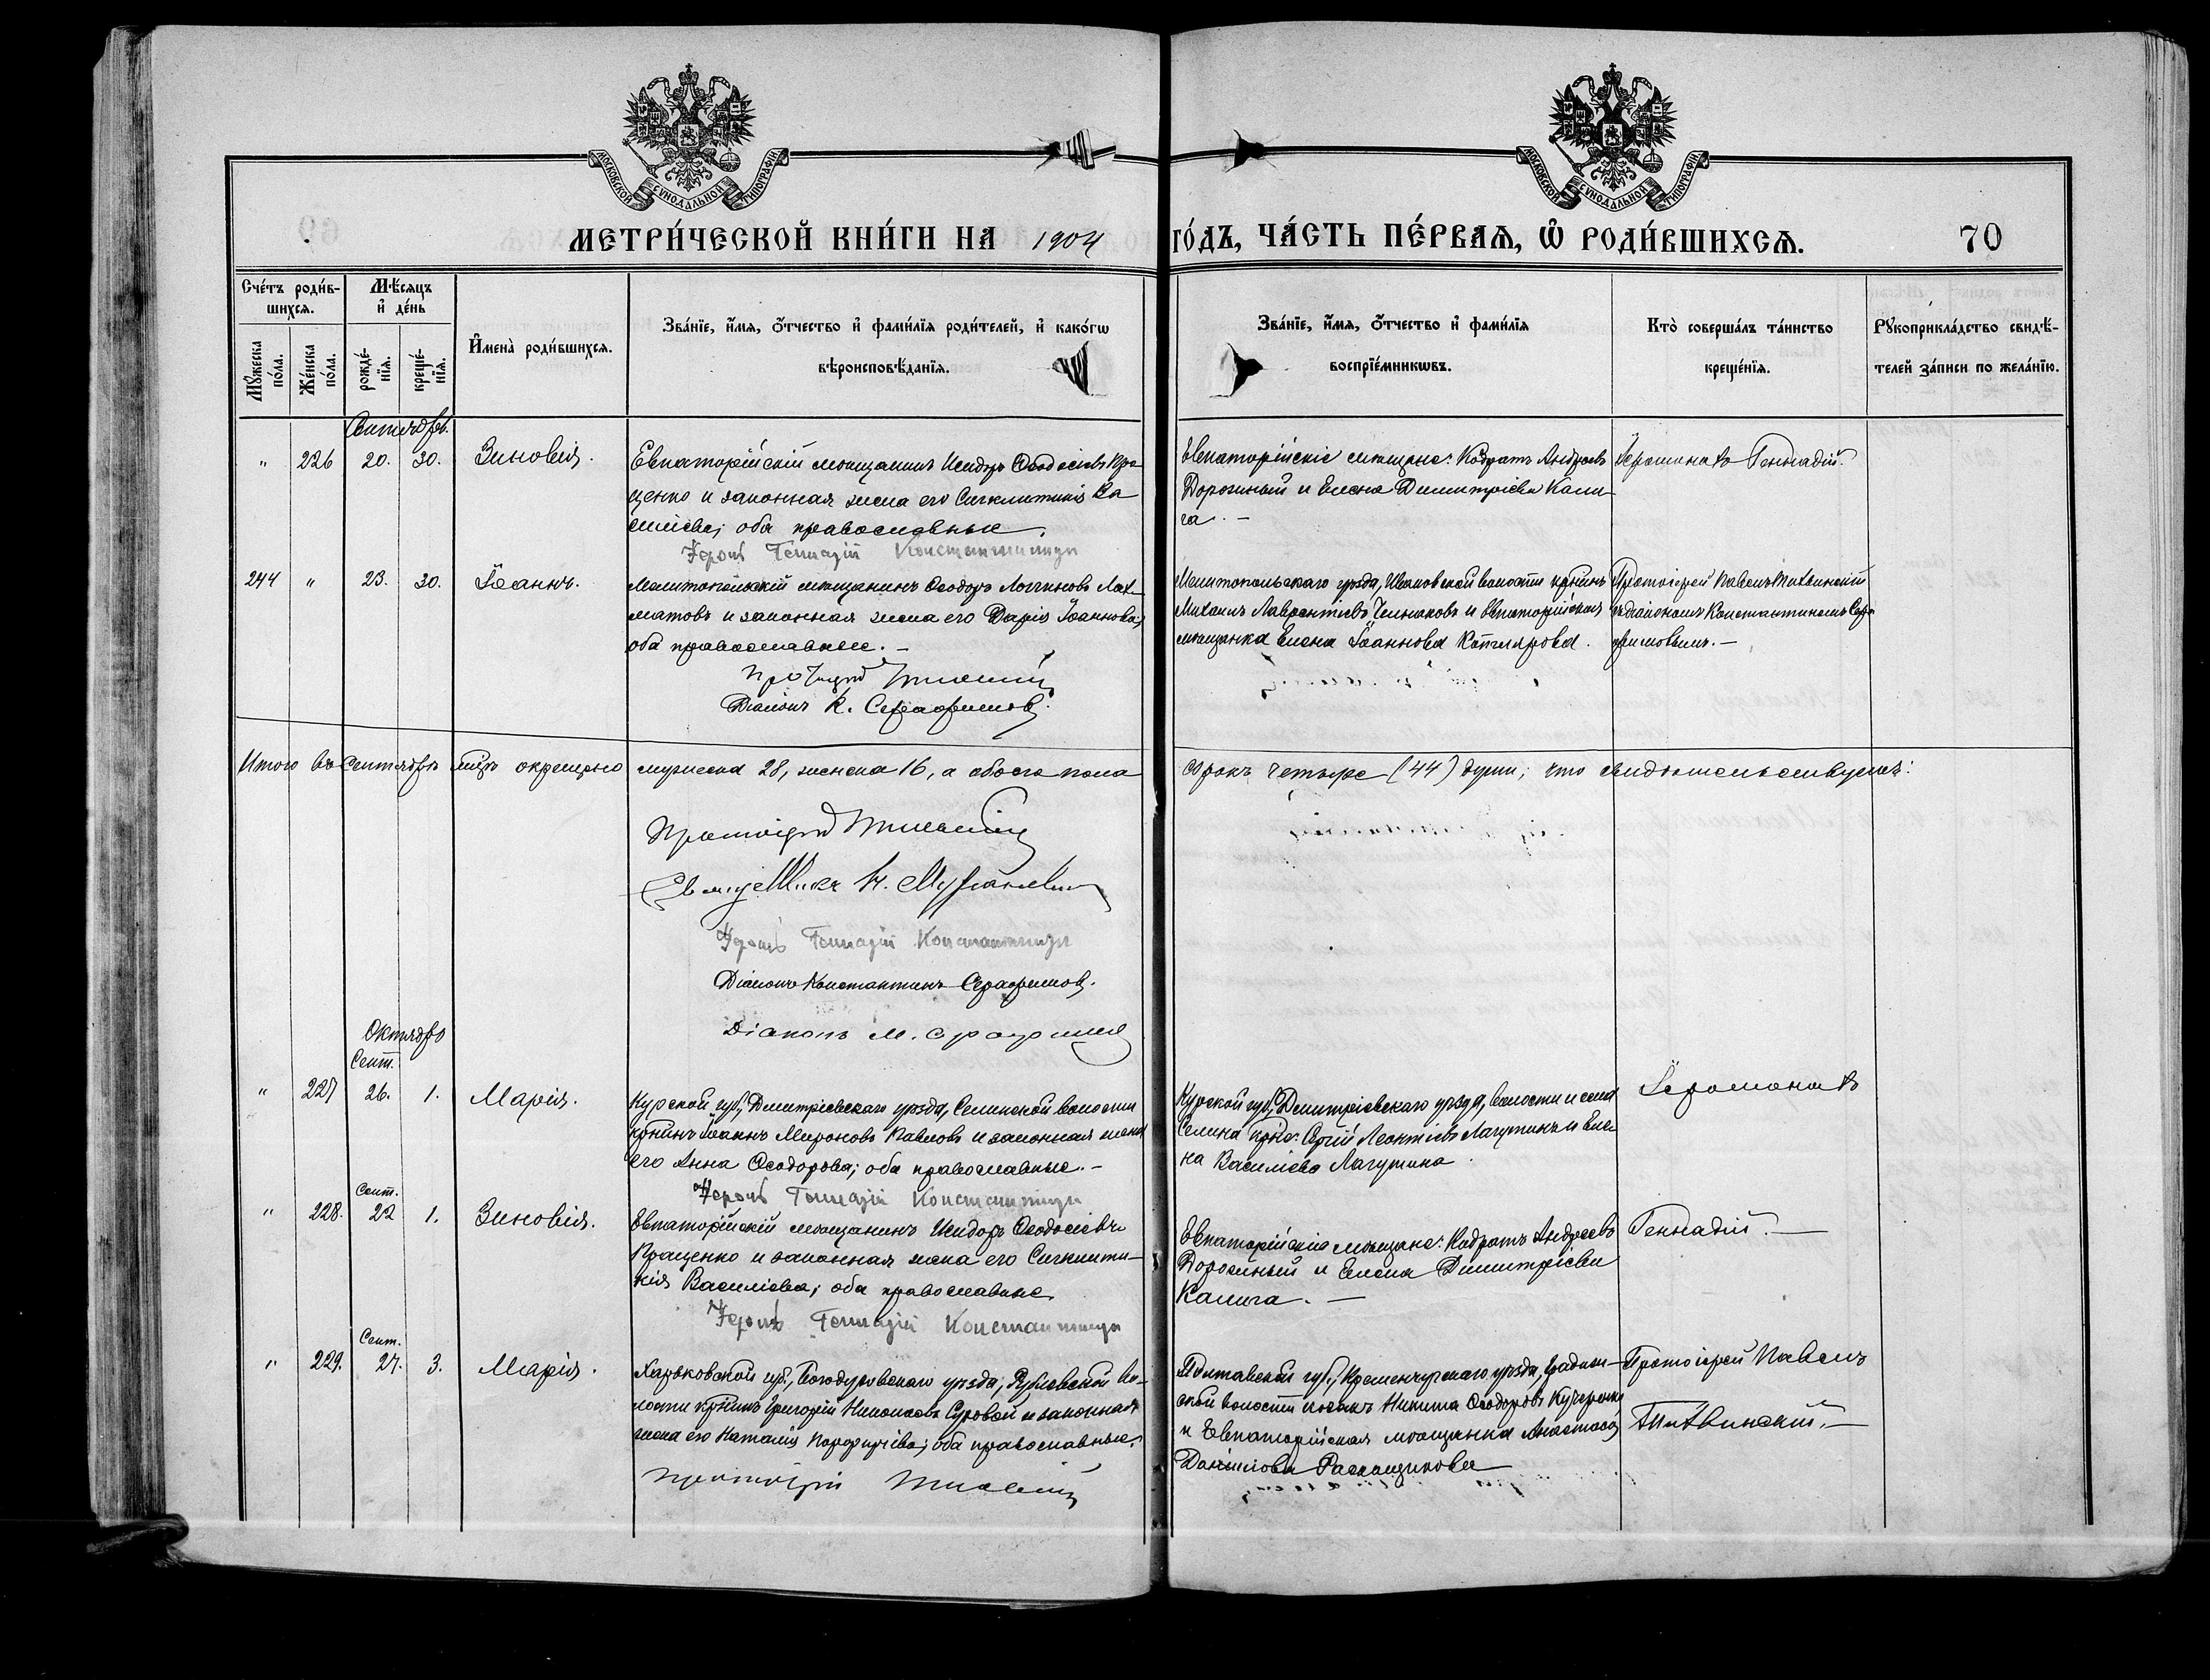 МОСКОВСКОЙ СѴНОДАЛЬНОЙ ТИПОГРАФІИ
МОСКОВСКОЙ СѴНОДАЛЬНОЙ ТИПОГРАФІИ
МЕТРИ́ЧЕСКОЙ КНИ́ГИ НА 1904 ГО́ДЪ, ЧА́СТЬ ПЕ́РВАЯ, Ѡ РОДИ́ВШИХСЯ. 70
Сче́тъ роди́в-
шихся.
Му́жеска по́ла.
Же́нска по́ла.
Мѣ́сяцъ и де́нь
рожде́-
нія.
креще́-
нія.
Имена̀ роди́вшихся.
Зва́ніе, и́мя, о́тчество и фами́лія роди́телей, и како́гѡ
вѣроисповѣ́данія.
Зва́ніе, и́мя, о́тчество и фами́лія
воспріе́мникѡвъ.
Кто̀ соверша́лъ та́инство
креще́нія.
Рукоприкла́дство свидѣ́-
телей за́писи по жела́нію.
Сентябрь.
" 226 20. 30. Зиновія.
Евпаторійскій мѣщанинъ Исидоръ Ѳеодосіевъ Пра
ценко и законная жена его Сигклитикія Ва
силіева; оба православные.
Іером. Геннадій
Евпаторійскіе мѣщане: Кодратъ Андреевъ
Дорогиный и Елена Димитріева Кали-
га. –
Іеромонахъ Геннадій.
244 " 23. 30. Іоаннъ.
Мелитопольскій мѣщанинъ Ѳеодоръ Логгиновъ Лах-
матовъ и законная жена его Дарія Іоаннова;
оба православные. –
Діаконъ К. Серафимовъ.
Мелитопольскаго уѣзда, Ивановской волости крнинъ
Михаилъ Лаврентіевъ и Евпаторійская
мѣщанка Елена Іоаннова Котлярова.
Протоіерей Павелъ Тихвинскій
съ діакономъ Константиномъ Сера
фимовымъ. –
Итого въ Сентябрѣ м-цѣ окрещено мужеска 28, женска 16, а обоего пола сорокъ четыре (44) души; что свидѣтельствуемъ:
Протоіерей Тихвинскій
Іером. Геннадій
Діаконъ Константинъ Серафимовъ.
Діаконъ М.
Октябрь
Сент.
" 227 26. 1. Марія.
Курской губ., Димитріевскаго уѣзда, Селинской волости
крнинъ Іоаннъ Мироновъ Павловъ и законная жена
его Анна Ѳеодорова; оба православные. –
Іером. Геннадій
Курской губ., Димитріевскаго уѣзда, волости и села
Селина крне: Сергій Леонтіевъ Лагутинъ и Еле-
на Василіева Лагутина.
Іеромонахъ
Сент.
" 228. 22 1. Зиновія.
Евпаторійскій мѣщанинъ Исидоръ Ѳеодосіевъ
Праценко и законная жена его Сигклити-
кія Василіева; оба православные.
Іером. Геннадій
Евпаторійскіе мѣщане: Кодратъ Андреевъ
Дорогиный и Елена Димитріева
Калига. –
Геннадій. –
Сент.
" 229. 27. 3. Марія.
Харьковской губ., Богодуховскаго уѣзда, Рублевской во-
лости крнинъ Григорій Николаевъ Суровой и законная
жена его Наталія Порфиріева; оба православные.
Протоіерей Тихвинскій
Полтавской губ., Кременчугскаго уѣзда, Градиж-
ской волости козакъ Никита Ѳеодоровъ
и Евпаторійская мѣщанка Анастасія
Даніилова
Протоіерей Павелъ
Тихвинскій. –